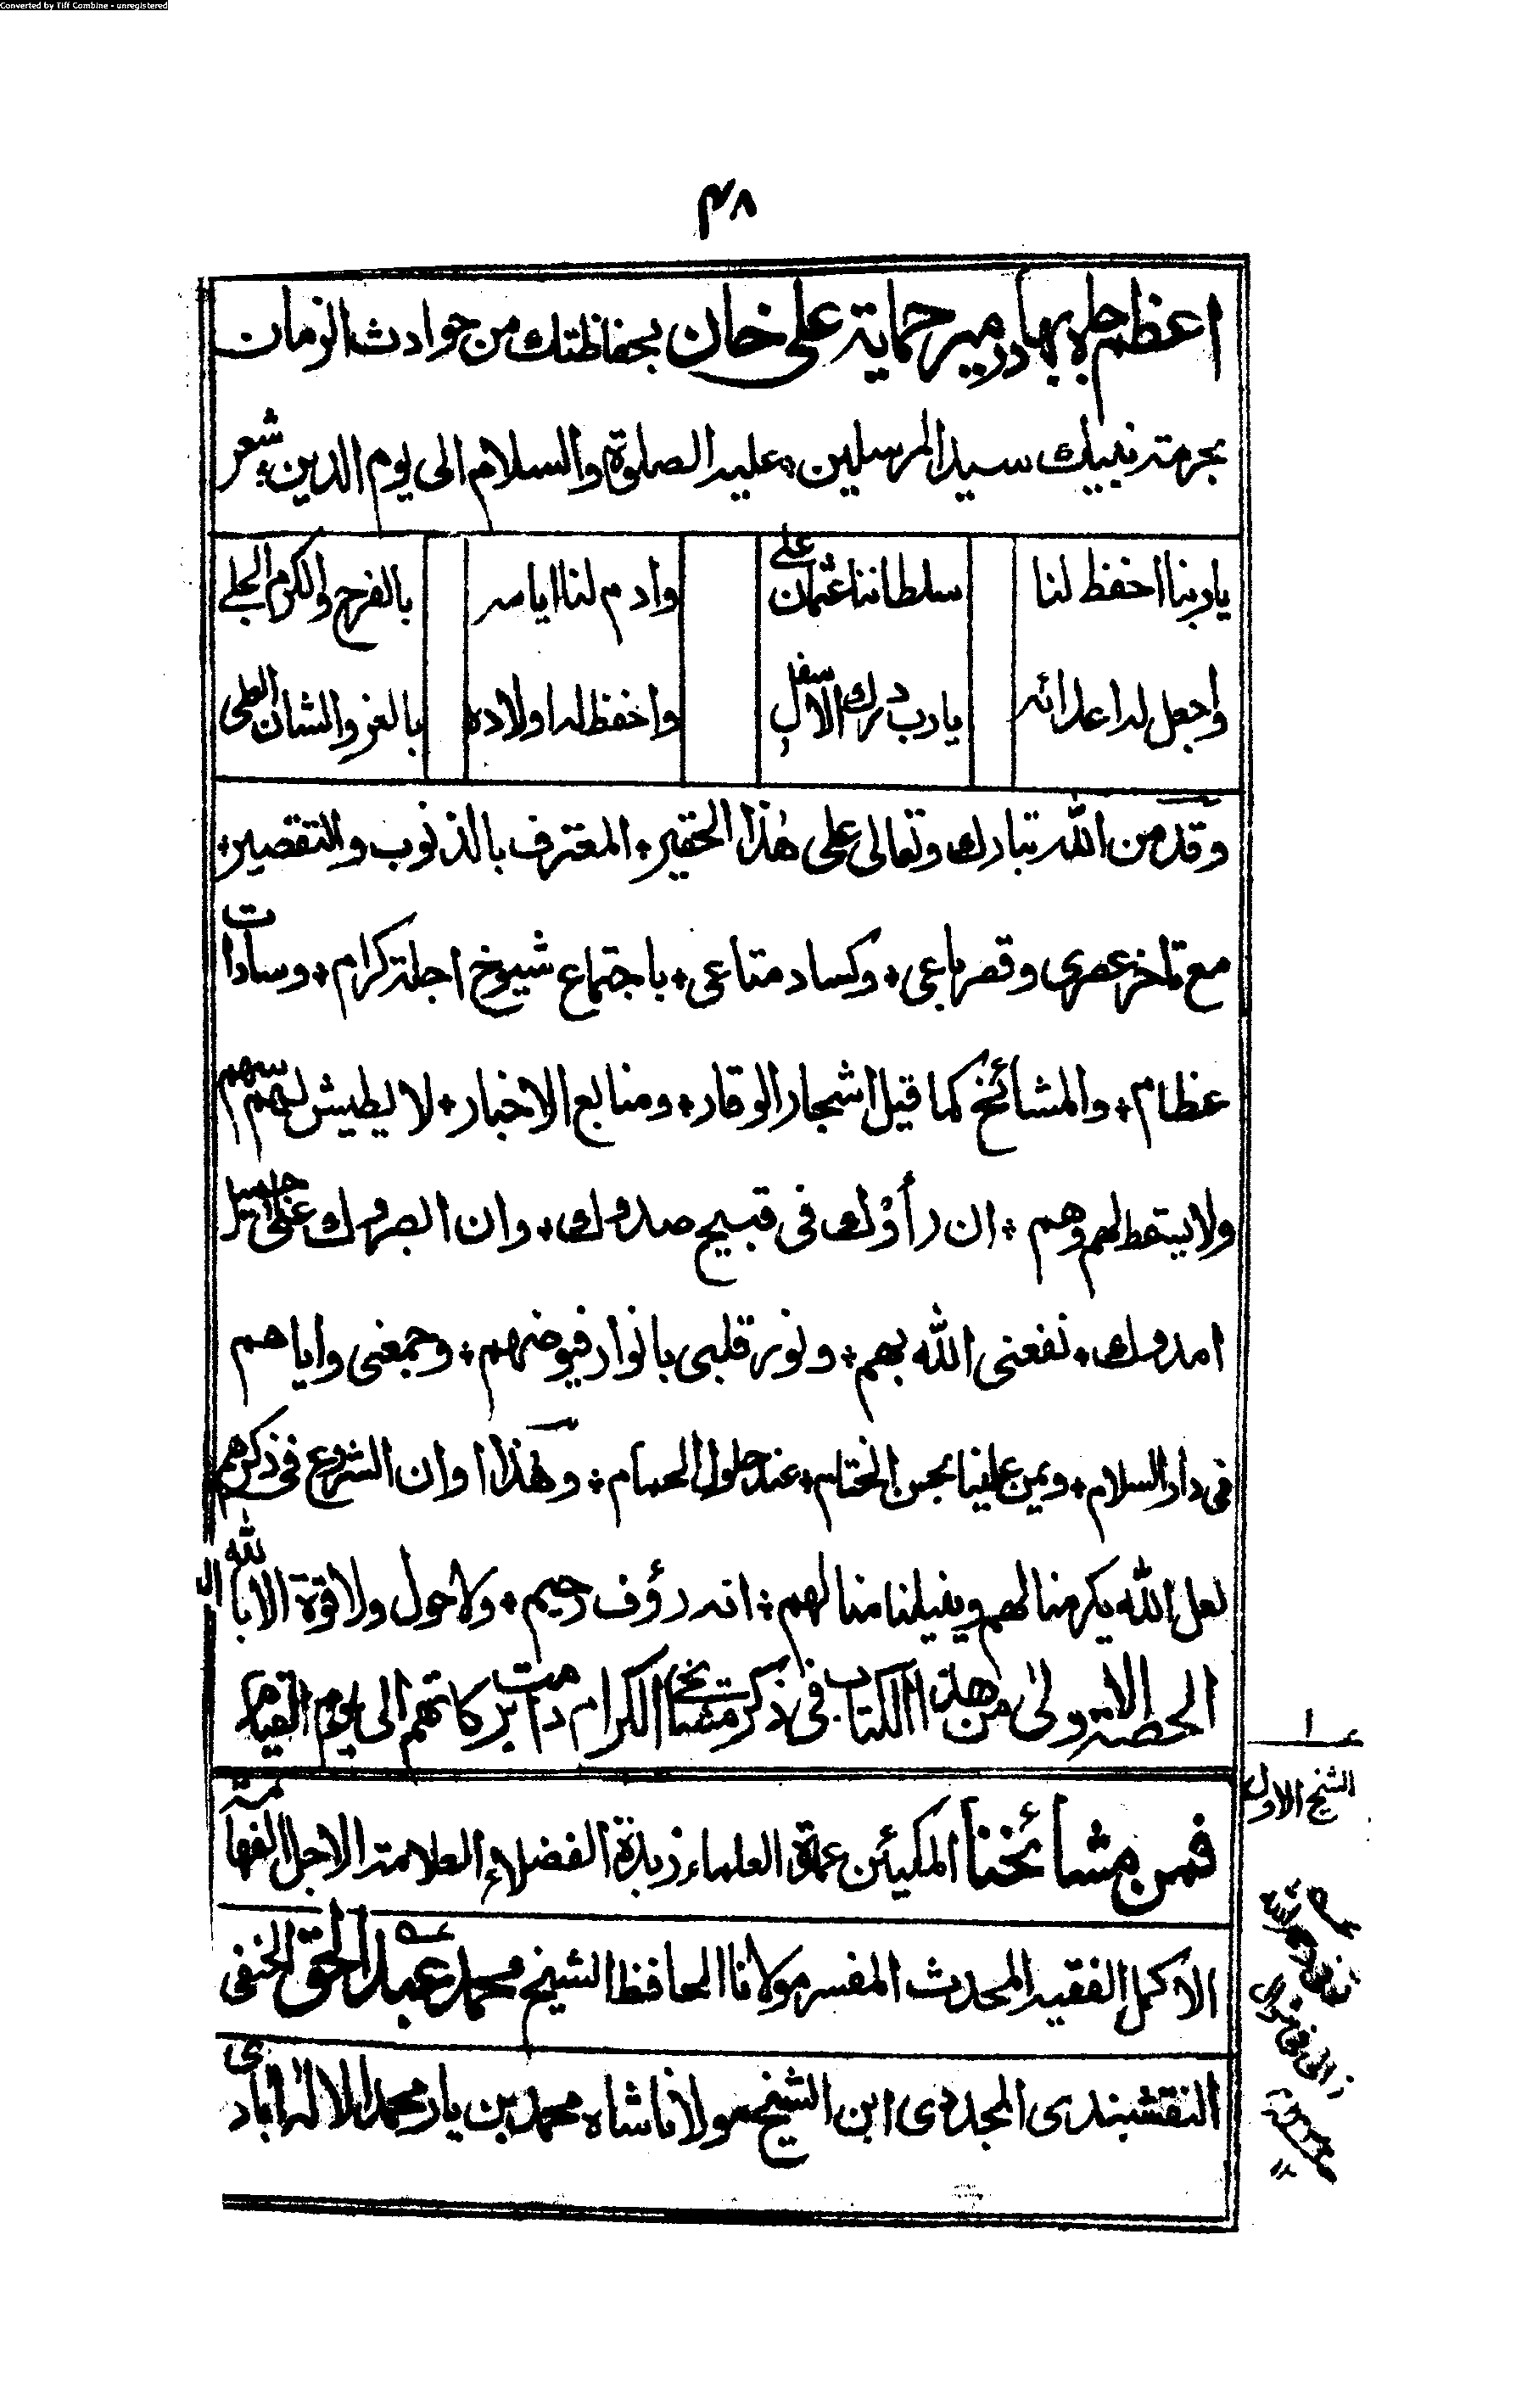 Converted by Tiff Combine - unregistered
٤٨
اعظم جاه بهادر مير حماية على خان بحفاظتك من حوادث الزمان
بحرمة نبيك سيد المرسلين ؞ عليه الصلوة والسلام الى يوم الدين ؞ شعر
ياربنا احفظ لنا سلطاننا عثمان على وادم لنا ايامه بالفرح والكرم الجلى
واجعل له اعدائه يارب درك الاسفل واحفظ له اولاده بالعز والشان العلى
وقد من الله تبارك وتعالى على هٰذا الحقير ؞ المعترف بالذنوب والتقصير ؞
مع تاخر عصرى وقصر باعى ؞ وكساد متاعى ؞ باجتماع شيوخ اجلة كرام ؞ وسادات
عظام ؞ والمشائخ كما قيل اشجار الوقار ؞ ومنابع الاخبار ؞ لا يطيش لهم سهم
ولا يسقط لهم وهم ؞ ان رأوك فى قبيح صدوك ؞ وان ابصروك على جميل
امدوك ؞ نفعنى الله بهم ؞ ونور قلبى بانوار فيوضهم ؞ وجمعنى واياهم
فى دار السلام ؞ ويمن علينا بحسن الختام ؞ عند حلول الحمام ؞ وهٰذا اوان الشروع فى ذكرهم
لعل الله يكرمنا لهم وينيلنا منالهم ؞ انه رؤف رحيم ؞ ولا حول ولا قوة الا بالله
الحصة الاولىٰ من هذا الكتاب فى ذكر مشائخ الكرام دامت بركاتهم الى يوم القيامة
ا
الشيخ الاول
فمن مشائخنا المكيئن عمدة العلماء زبدة الفضلاء العلامة الاجل الفهامة
الاكمل الفقيه المحدث المفسر مولانا الحافظ الشيخ محمد عبد الحق الحنفى
النقشبندى المجددى ابن الشيخ مولانا شاه محمد بن يار محمد الالٰه ابادى